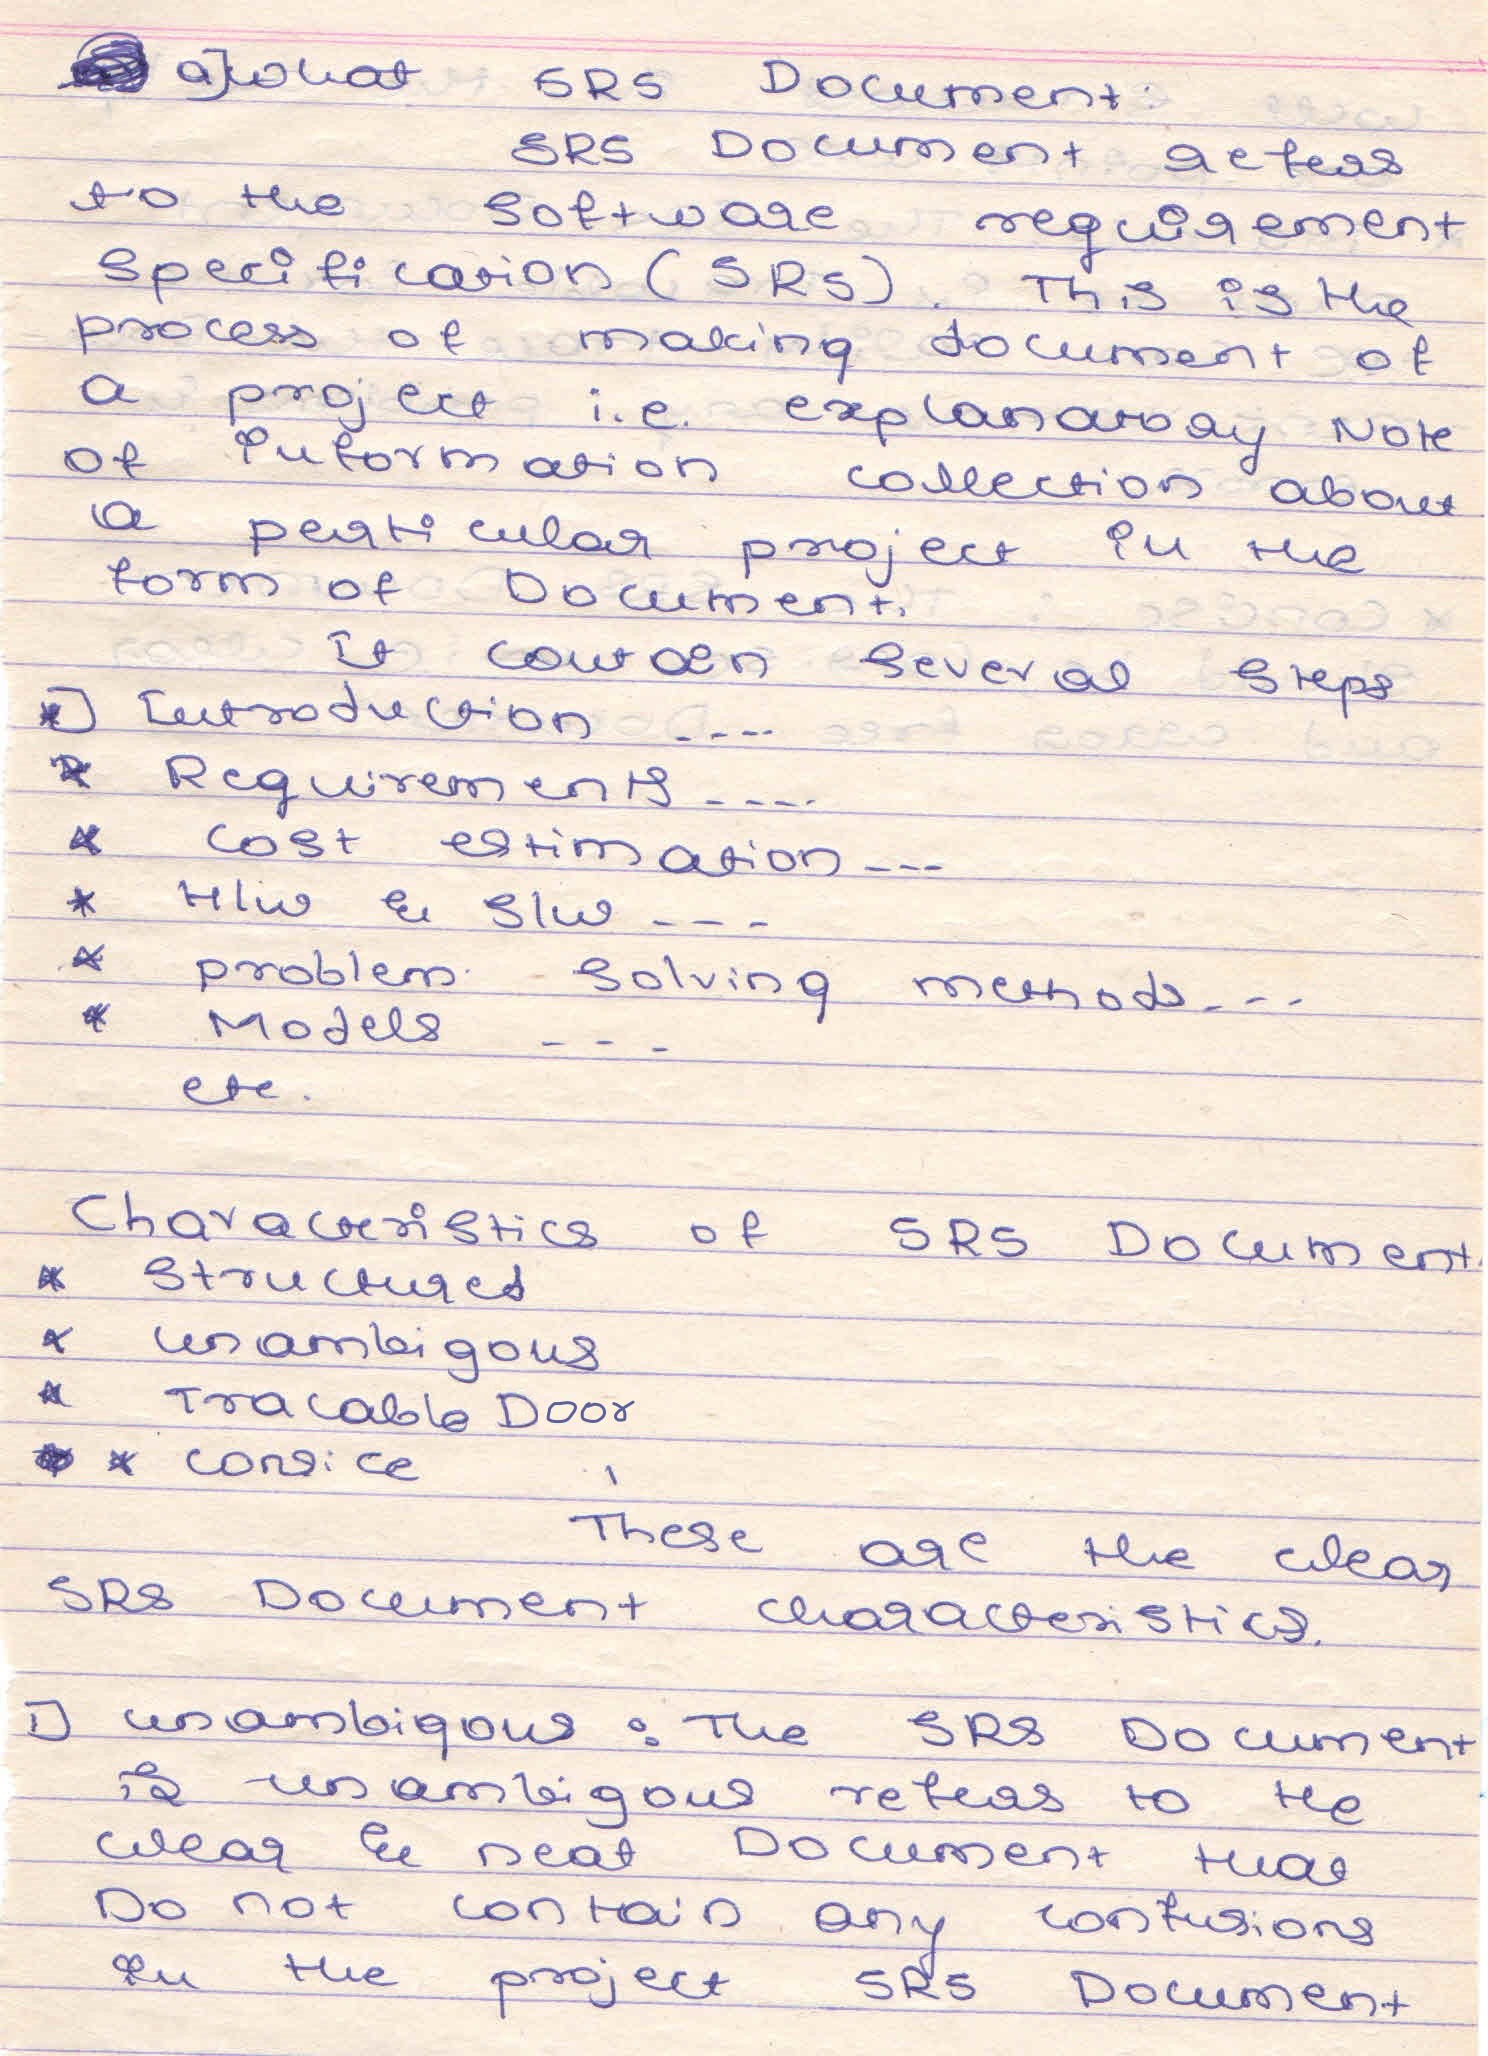 a] what SRS Document:
SRS Document refers
to the software requirement
specification (SRS). This is the
process of making document of
a project i.e. explanatory Note
of information collection about
a perticular project in the
form of Document.
It contain several steps
*] Introduction ----
* Requirements ----
* cost estimation ---
* H/w & S/w ---
* problem solving methods ---
* Models ---
etc.
Characteristics of SRS Document.
* structured
* unambigous
* Tracable Door
* consice
These are the clear
SRS Document characteristics.
1] unambigous : The SRS Document
is unambigous refers to the
clear & neat Document that
Do not contain any confusions
in the project SRS Document